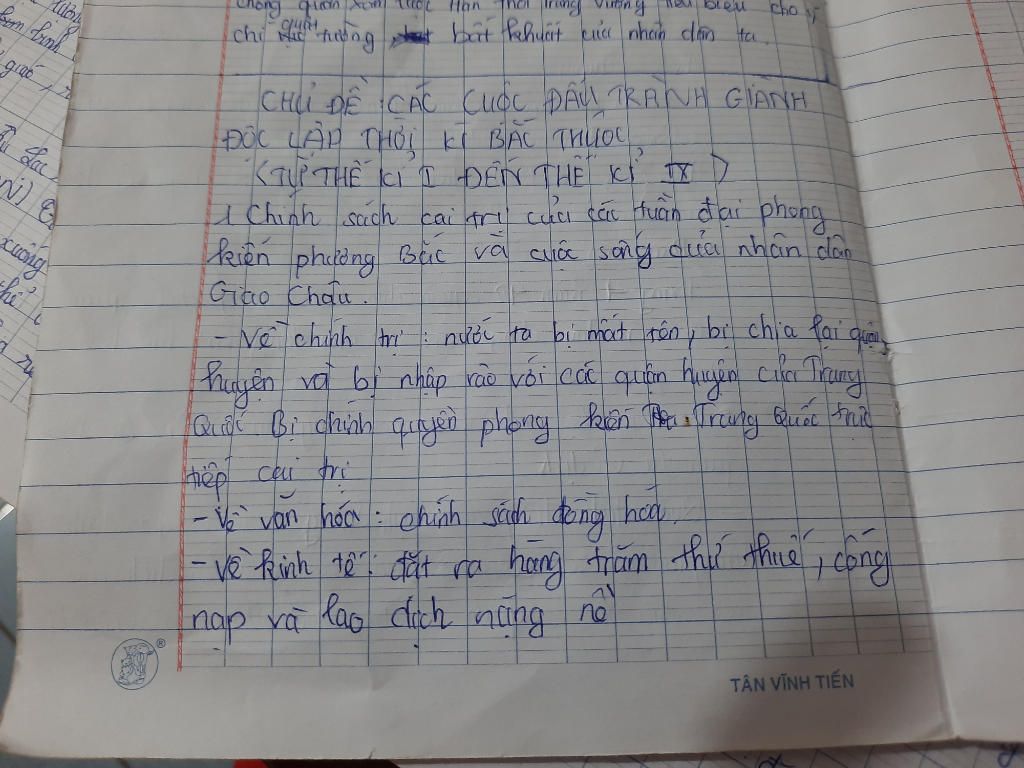 chống quân xâm lược Hán thời Trưng Vương tiêu biểu cho ý
chí quật tường bất khuất của nhân dân ta.
CHỦ ĐỀ : CÁC CUỘC ĐẤU TRANH GIÀNH
ĐỘC LẬP THỜI KÌ BẮC THUỘC
(TỪ THẾ KỈ I ĐẾN THẾ KỈ IX)
1 Chính sách cai trị của các triều đại phong
kiến phương Bắc và cuộc sống của nhân dân
Giao Châu.
- Về chính trị : nước ta bị mất tên, bị chia lại quận
huyện và bị nhập vào với các quận huyện của Trung
Quốc Bị chính quyền phong kiến Trung Quốc trực
tiếp cai trị
- Về văn hóa : chính sách đồng hóa.
- Về kinh tế : đặt ra hàng trăm thứ thuế, cống
nạp và lao dịch nặng nề
TÂN VĨNH TIẾN